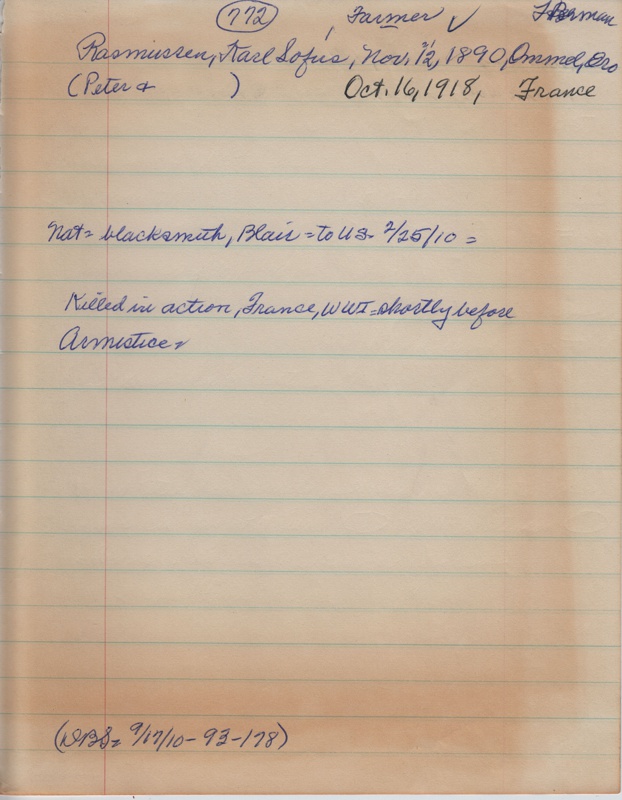 772 , Farmer ✓
Rasmussen, Karl Sofus, Nov. 12, 1890, Ommel, Bro
(Peter & ) Oct. 16, 1918, France
Nat= blacksmith, Blair = to US- 2/25/10 =
Killed in action, France, WWI = shortly before
Armistice =
(DBS= 9/17/10-93-178)